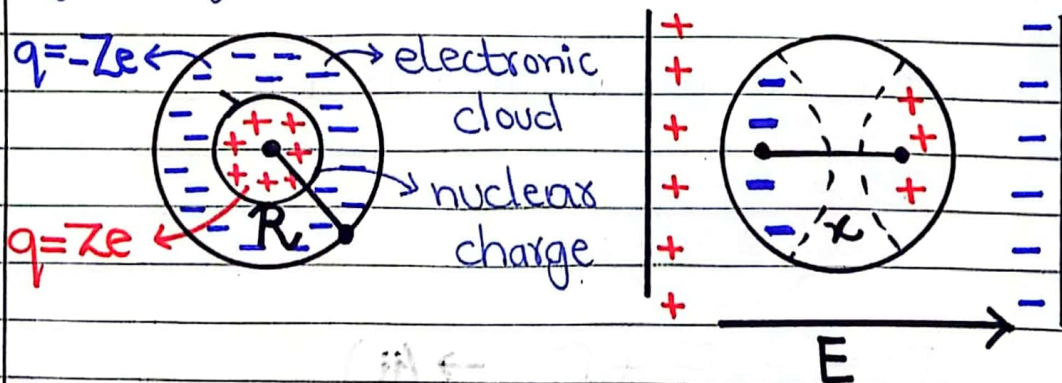 q=-Ze
electronic
cloud
nuclear
charge
q=Ze
R
x
E